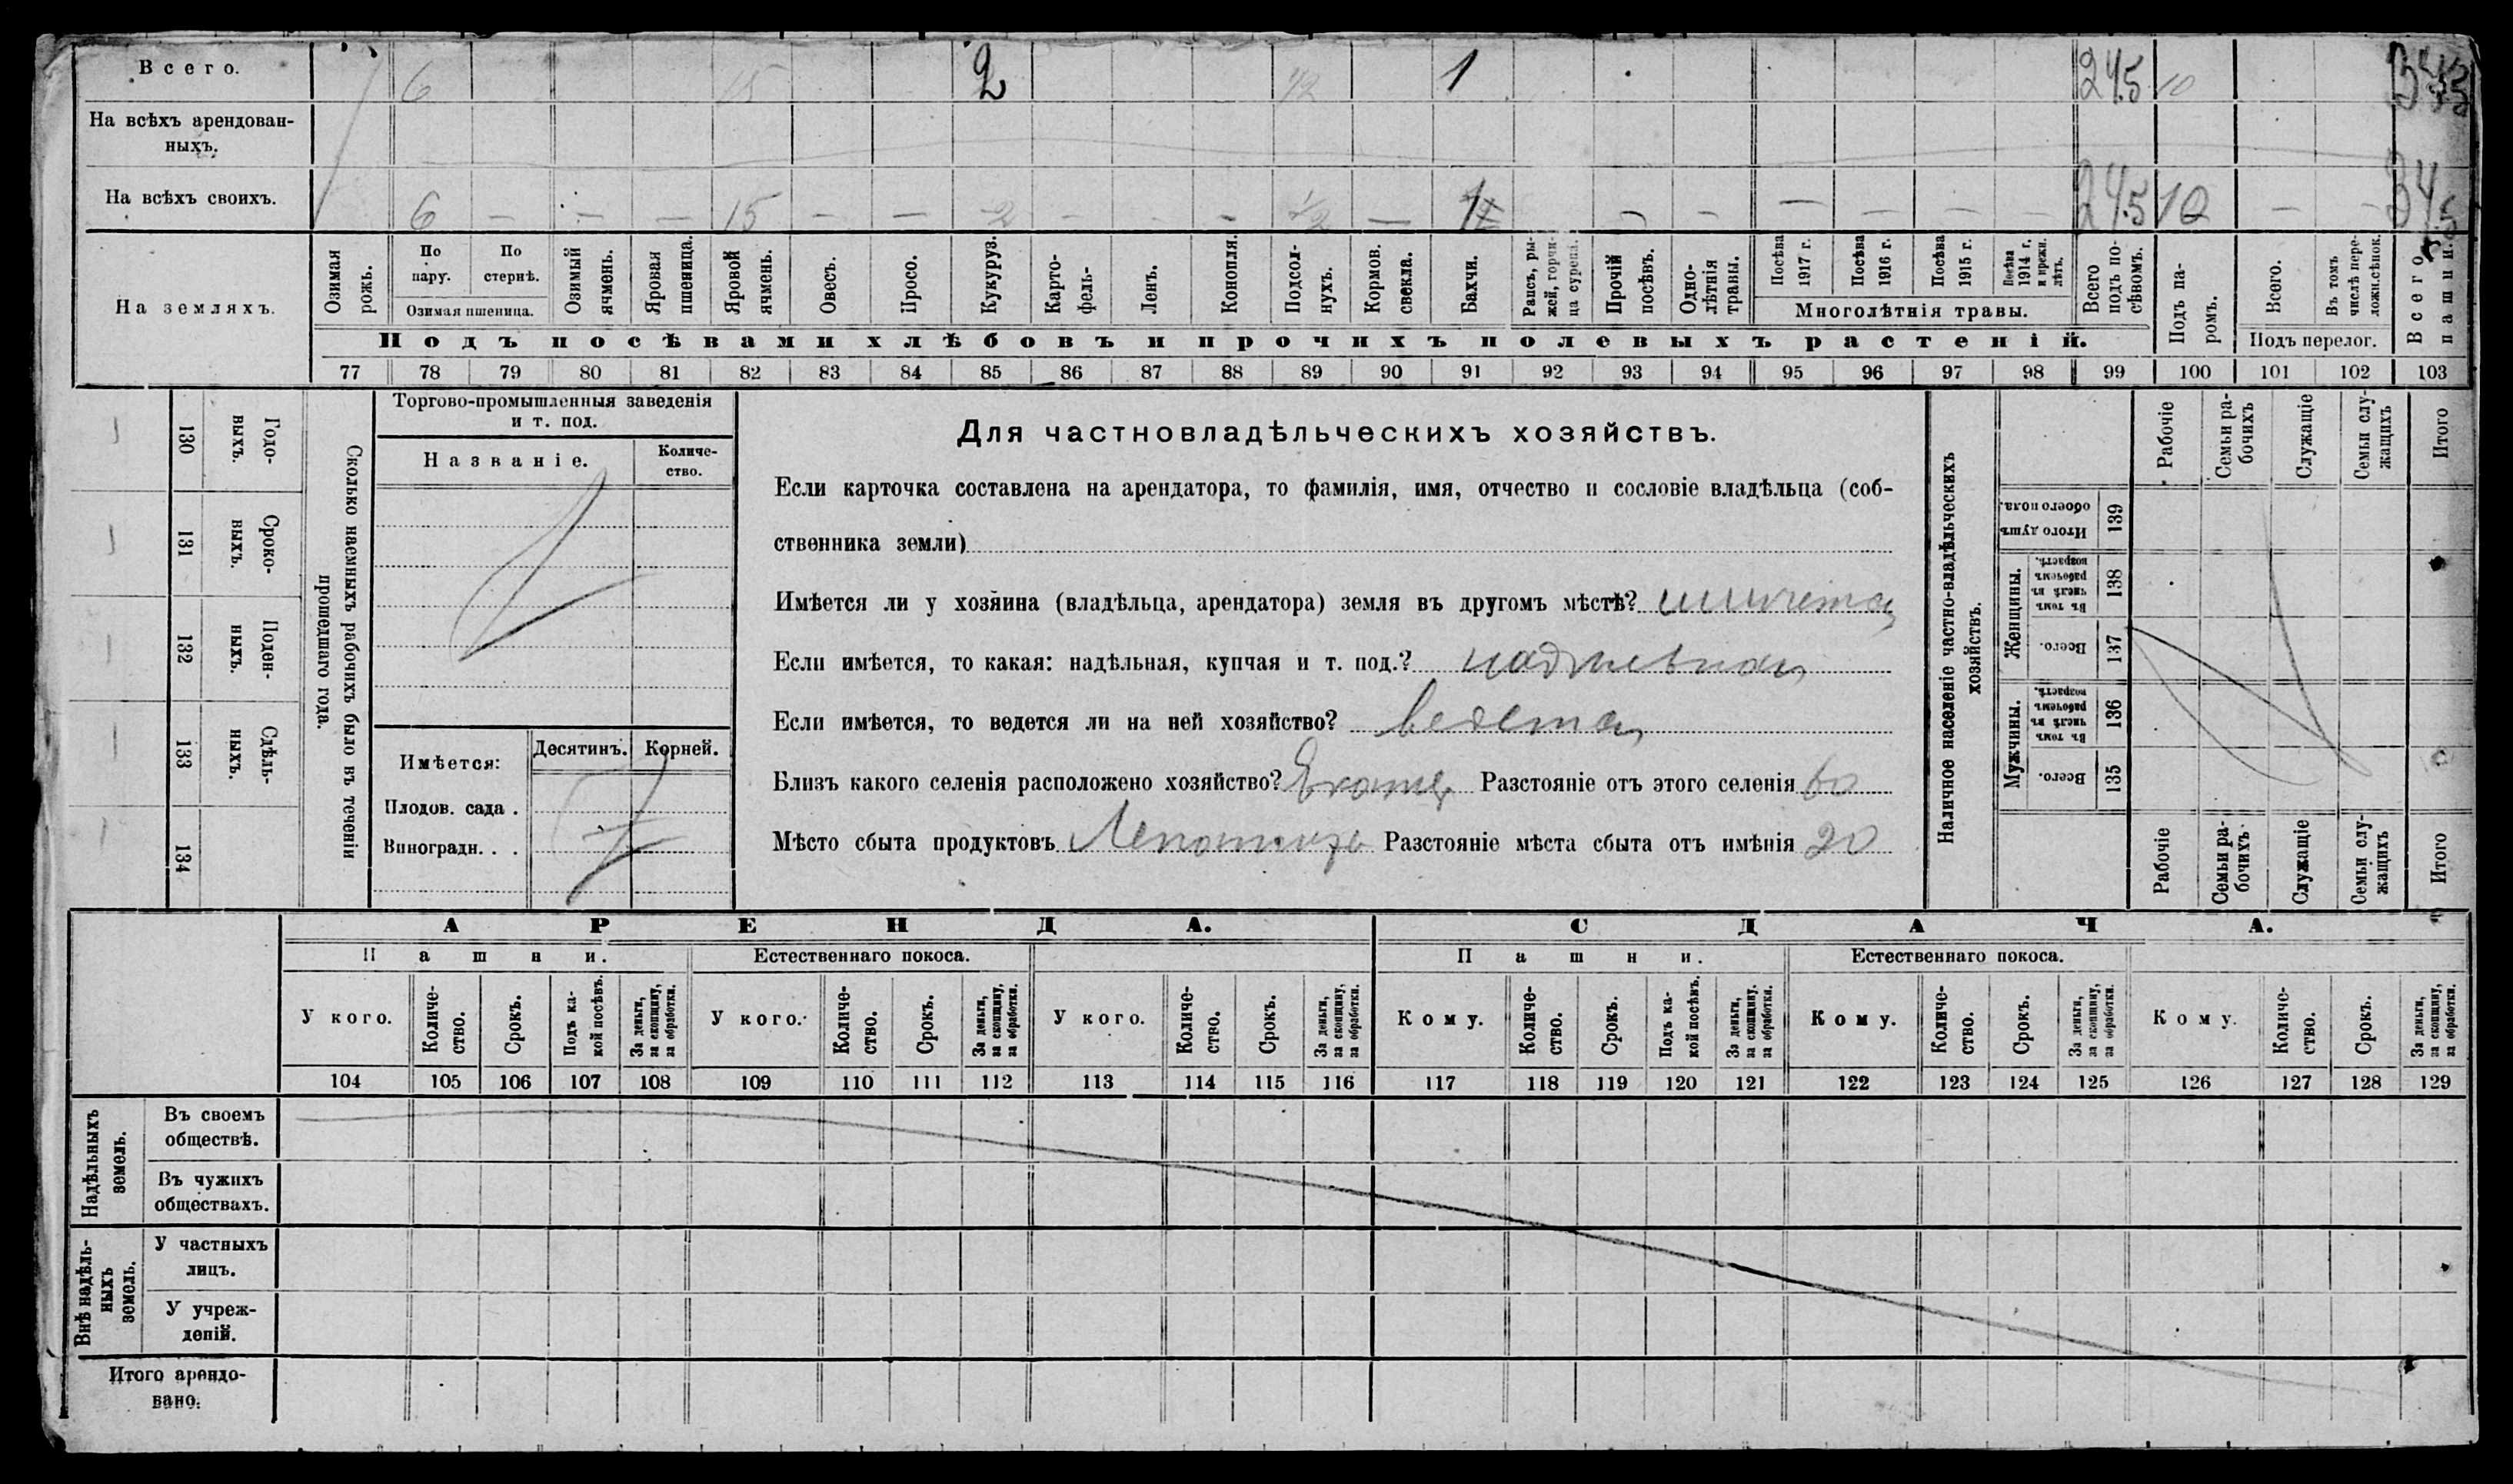 Всего. 6 15 2 1/2 1 24.5 10
На всѣхъ арендован-
ныхъ.
На всѣхъ своихъ. 6 — — — 15 — — 2 — — — 1/2 — 1 — — — — — — 24.5 10 — — 34.5
На земляхъ.
Озимая рожь.
По пару.
По стернѣ.
Озимая пшеница.
Озимый ячмень.
Яровая пшеница.
Яровой ячмень.
Овесъ.
Просо.
Кукуруз.
Карто-
фель-
Ленъ.
Конопля.
Подсол-
нухъ.
Кормов. свекла.
Бахчи.
Рапсъ, ры-
жей, горчи-
ца сурепа.
Прочій посѣвъ.
Одно-
лѣтнія травы.
Посѣва 1917 г.
Посѣва 1916 г.
Посѣва 1915 г.
Посѣва 1914 г. и прежн. лѣтъ.
Многолѣтнія травы.
Всего подъ по-
сѣвомъ.
Подъ па-
ромъ.
Всего.
Въ томъ числѣ пере-
ложн.сѣнок.
Подъ перелог.
Всего пашни.
Подъ посѣвами хлѣбовъ и прочихъ полевыхъ растеній.
77 78 79 80 81 82 83 84 85 86 87 88 89 90 91 92 93 94 95 96 97 98 99 100 101 102 103
130 Годо-
выхъ.
131 Сроко-
ныхъ.
132 Поден-
ныхъ.
133 Сдѣль-
ныхъ.
134
Сколько наемныхъ рабочихъ было въ теченіи
прошедшаго года.
Торгово-промышленныя заведенія
и т. под.
Названіе.
Количе-
ство.
Имѣется:
Десятинъ. Корней.
Плодов. сада .
Виноградн. . .
Для частновладѣльческихъ хозяйствъ.
Если карточка составлена на арендатора, то фамилія, имя, отчество и сословіе владѣльца (соб-
ственника земли)
Имѣется ли у хозяина (владѣльца, арендатора) земля въ другомъ мѣстѣ?
Если имѣется, то какая: надѣльная, купчая и т. под.? надѣльная
Если имѣется, то ведется ли на ней хозяйство? ведется
Близъ какого селенія расположено хозяйство? Разстояніе отъ этого селенія 60
Мѣсто сбыта продуктовъ Разстояніе мѣста сбыта отъ имѣнія 20
Наличное населеніе частно-владѣльческихъ
хозяйствъ.
Рабочіе
Семьи ра-
бочихъ
Служащіе
Семьи слу-
жащихъ
Итого
Итого душъ обоего пола. 139
Женщины.
Въ томъ числѣ въ рабочемъ возрастѣ. 138
Всего. 137
Мужчины.
Въ томъ числѣ въ рабочемъ возрастѣ. 136
Всего. 135
Рабочіе
Семьи ра-
бочихъ.
Служащіе
Семьи слу-
жащихъ
Итого
АРЕНДА. СДАЧА.
Пашни. Естественнаго покоса. Пашни. Естественнаго покоса.
У кого.
Количе-
ство.
Срокъ.
Подъ ка-
кой посѣвъ.
За деньги, за скопщину, за обработки.
У кого.
Количе-
ство.
Срокъ.
За деньги, за скопщину, за обработки.
У кого.
Количе-
ство.
Срокъ.
За деньги, за скопщину, за обработки.
Кому.
Количе-
ство.
Срокъ.
Подъ ка-
кой посѣвъ.
За деньги, за скопщину. за обработки.
Кому.
Количе-
ство.
Срокъ.
За деньги, за скопщину, за обработки.
Кому.
Количе-
ство.
Срокъ.
За деньги, за скопщину, за обработки.
104 105 106 107 108 109 110 111 112 113 114 115 116 117 118 119 120 121 122 123 124 125 126 127 128 129
Надѣльныхъ земель.
Въ своемъ
обществѣ.
Въ чужихъ
обществахъ.
Внѣ надѣль-
ныхъ земель.
У частныхъ
лицъ.
У учреж-
деній.
Итого арендо-
вано.